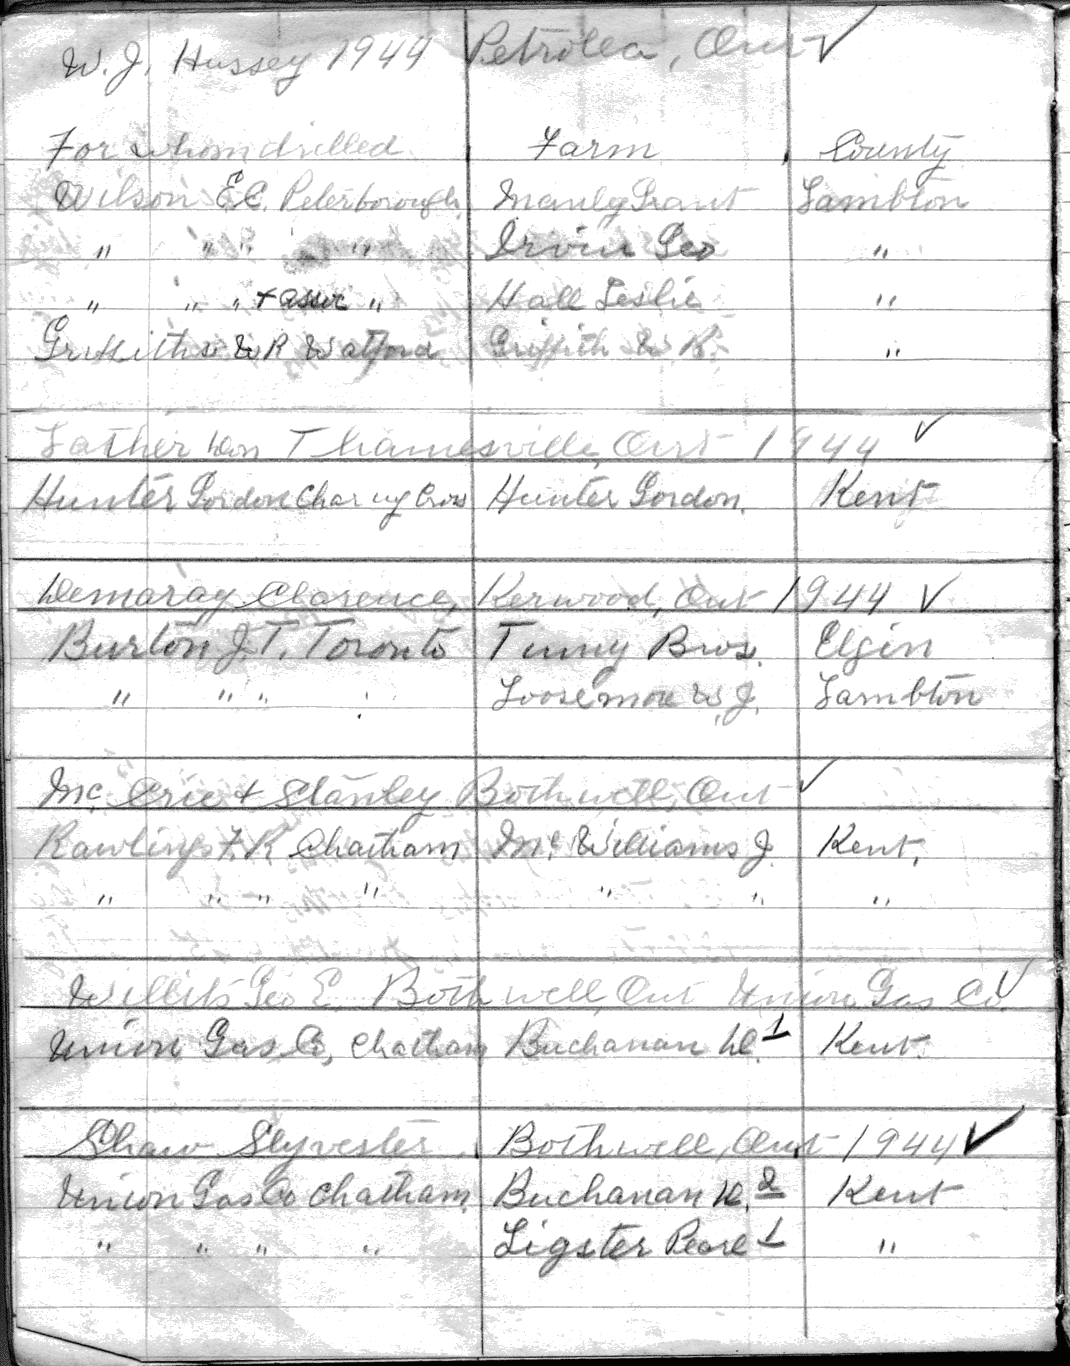 W. J. Hussey 1944 Petrolea, Ont ✓
For whom drilled Farm County
Wilson E.C. Peterborough Manly Grant Lambton
" " " " Irvin Geo "
" " " + assoc " Hall Leslie "
Griffiths W R Watford Griffith W R. "
Father Don Thamesville, Ont 1944 ✓
Hunter Gordon Charing Cross Hunter Gordon. Kent
Demaray Clarence, Kerwood, Ont 1944 ✓
Burton J. T. Toronto Bros. Elgin
" " " Loosemore W. J. Lambton
Mc Crie + Stanley Bothwell, Ont ✓
Rawlings F. R Chatham Mc Williams J. Kent.
" " " " " " "
Willits Geo E. Bothwell, Ont Union Gas Co. ✓
Union Gas Co, Chatham Buchanan D. 1 Kent.
Shaw Slyvester Bothwell, Ont 1944 ✓
Union Gas Co Chatham. Buchanan D. 2 Kent
" " " " Ligster 1 "